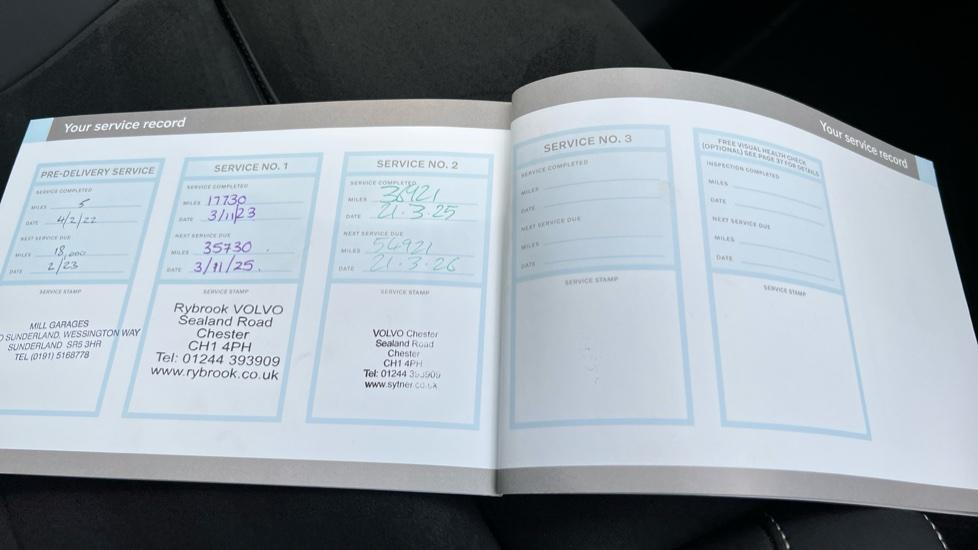 Your service record
PRE-DELIVERY SERVICE
SERVICE COMPLETED
MILES 5
DATE 4/2/22
NEXT SERVICE DUE
MILES 18,000
DATE 2/23
SERVICE STAMP
MILL GARAGES
SUNDERLAND, WESSINGTON WAY
SUNDERLAND SR5 3HR
TEL (0191) 5168778
SERVICE NO. 1
SERVICE COMPLETED
MILES 17730
DATE 3/11/23
NEXT SERVICE DUE
MILES 35730
DATE 3/11/25.
SERVICE STAMP
Rybrook VOLVO
Sealand Road
Chester
CH1 4PH
Tel: 01244 393909
www.rybrook.co.uk
SERVICE NO. 2
SERVICE COMPLETED
MILES 36921
DATE 21.3.25
NEXT SERVICE DUE
MILES 54921
DATE 21.3.26
SERVICE STAMP
VOLVO Chester
Sealand Road
Chester
CH1 4PH
Tel: 01244 393909
www.sytner.co.uk
SERVICE NO. 3
SERVICE COMPLETED
MILES
DATE
NEXT SERVICE DUE
MILES
DATE
SERVICE STAMP
Your service record
FREE VISUAL HEALTH CHECK
(OPTIONAL) SEE PAGE 37 FOR DETAILS
INSPECTION COMPLETED
MILES
DATE
NEXT SERVICE DUE
MILES
DATE
SERVICE STAMP